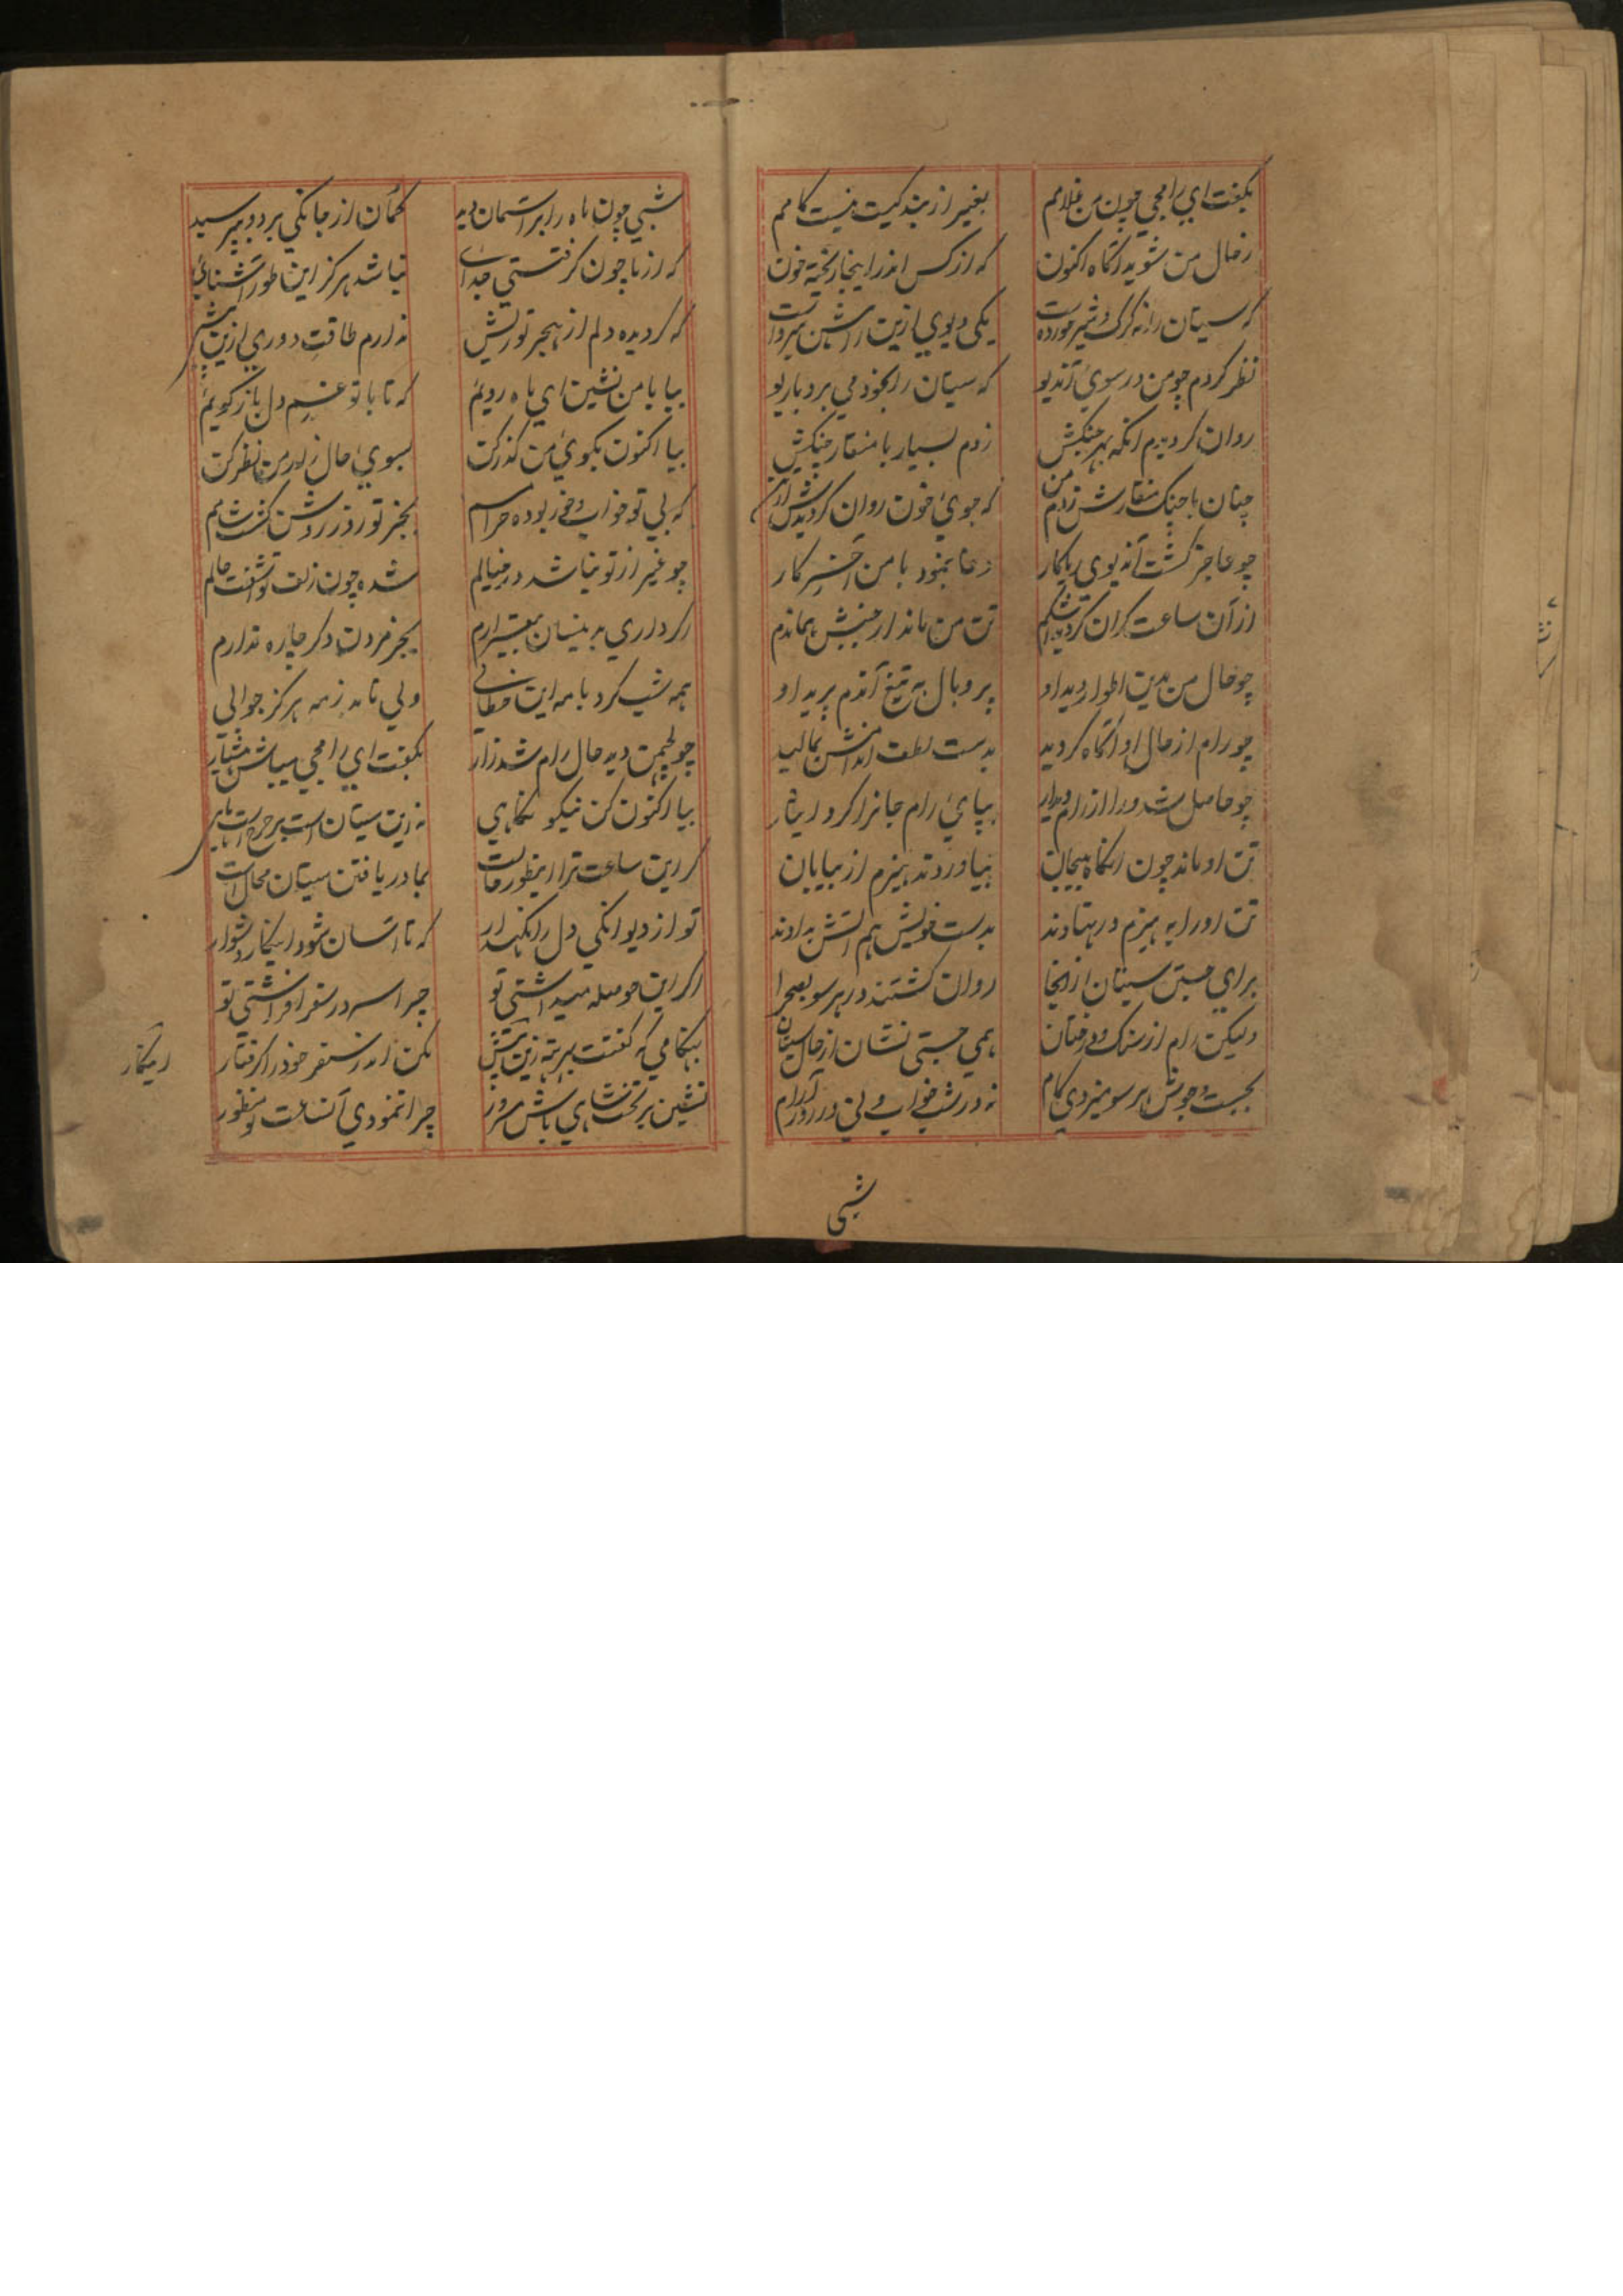 بگفت ای رامجی چون من غلامم بغیر از بندگیت نیست کامم
ز حال من شوید آگاه اکنون که از کس اندر اینجا ریخته خون
که سیتان را نه گرگ و شیر خورده است یکی دیوی ازین راهش برده است
نظر کردم چو من در سوی آندیو که سیتان را بخود می برد با ریو
روان گردیدم آنگه بهر جنگش زدم بسیار با منقار چنگش
چنان با چنگ منقارش زدم من که جوی خون روان گردیدش از تن
چو عاجز گشت آندیوی ریاکار دعا بنمود با من آخر کار
از آن ساعت گران گردید تن من ماند از جنبش بماندم
چو حال من بدین اطوار دید او پر و بال به تیغ آندم برید او
چو رام از حال او آگاه گردید بدست لطف اندامش بمالید
چو حاصل شد ورا از رام دیدار بپای رام جانرا کرد ایثار
تن او ماند چون آنگاه بیجان بیاوردند هیزم از بیابان
تن او را به هیزم در نهادند بدست خویش هم آتش بدادند
برای جستن سیتان از آنجا روان گشتند در هر سو بصحرا
ولیکن رام از سنگ و درختان همی جستی نشان از حال سیتان
بجست و جوش هر سو میزدی گام نه در شب خواب و نی در روز آرام
شبی
شبی چون ماه را بر آسمان دید گمان از جانکی برد و بپرسید
که از ما چون گرفتستی جدائی نباشد هرگز این طور آشنائی
که گردیده دلم از هجر تو ریش ندارم طاقت دوری ازین بیش
بیا با من نشین ای ماه رویم که تا با تو غم دل باز گویم
بیا اکنون بکوی من گذر کن بسوی حال زار من نظر کن
که بی تو خواب و خور بوده حرامم بجز تو روز روشن گشت شامم
چو غیر از تو نباشد در خیالم شده چون زلف تو آشفته حالم
اگر داری بدینسان بیقرارم بجز مردن دگر چاره ندارم
همه شب کرد با مه این خطابی ولی نامد ز مه هرگز جوابی
چو لچمن دید حال رام شد زار بگفت ای رامجی میباش هشیار
بیا اکنون کن نیکو نگاهی نه این سیتان است بر چرخ است ماهی
گر این ساعت ترا اینطور حالت بما دریافتن سیتان محال است
تو از دیوانگی دل را نگهدار که تا آسان شود اینکار دشوار
اگر این حوصله میداشتی تو چرا سر در سفر افراشتی تو
بهنگامی که گفتت برتهه زین پیش مکن اندر سفر خود را گرفتار
نشین بر تخت شاهی باش مسرور چرا ننمودی آنساعت تو منظور
اینکار